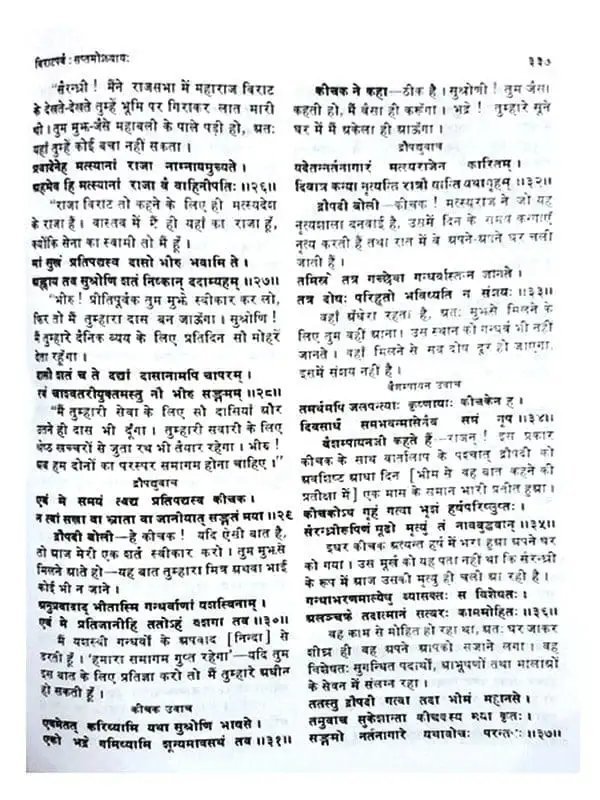 विराटपर्व : सप्तमोऽध्यायः
३३७
“सैरन्ध्री ! मैंने राजसभा में महाराज विराट
के देखते-देखते तुम्हें भूमि पर गिराकर लात मारी
थी। तुम मुझ-जैसे महाबली के पाले पड़ी हो, अतः
यहाँ तुम्हें कोई बचा नहीं सकता।
प्रवादेनेह मत्स्यानां राजा नाम्नायमुच्यते ।
अहमेव हि मत्स्यानां राजा वै वाहिनीपतिः ॥२६॥
“राजा विराट तो कहने के लिए ही मत्स्यदेश
के राजा हैं। वास्तव में मैं ही यहाँ का राजा हूँ,
क्योंकि सेना का स्वामी तो मैं हूँ।
मां सुखं प्रतिपद्यस्व दासो भीरु भवामि ते ।
अह्नाय तव सुश्रोणि शतं निष्कान् ददाम्यहम् ॥२७॥
“भीरु ! प्रीतिपूर्वक तुम मुझे स्वीकार कर लो,
फिर तो मैं तुम्हारा दास बन जाऊँगा। सुश्रोणि !
मैं तुम्हारे दैनिक व्यय के लिए प्रतिदिन सौ मोहरें
देता रहूँगा।
दासी शतं च ते दद्यां दासानामपि चापरम् ।
रथं चाश्वतरीयुक्तमस्तु नौ भीरु सङ्गमम् ॥२८॥
“मैं तुम्हारी सेवा के लिए सौ दासियाँ और
उतने ही दास भी दूँगा। तुम्हारी सवारी के लिए
श्रेष्ठ खच्चरों से जुता रथ भी तैयार रहेगा। भीरु !
अब हम दोनों का परस्पर समागम होना चाहिए।”
द्रौपद्युवाच
एवं मे समयं त्वद्य प्रतिपद्यस्व कीचक ।
न त्वां सखा वा भ्राता वा जानीयात् सङ्गतं मया ॥२९
द्रौपदी बोली—हे कीचक ! यदि ऐसी बात है,
तो आज मेरी एक शर्त स्वीकार करो। तुम मुझसे
मिलने आते हो—यह बात तुम्हारा मित्र अथवा भाई
कोई भी न जाने।
अनुप्रवादाद् भीतास्मि गन्धर्वाणां यशस्विनाम् ।
एवं मे प्रतिजानीहि ततोऽहं वशगा तव ॥३०॥
मैं यशस्वी गन्धर्वों के अपवाद [निन्दा] से
डरती हूँ। ‘हमारा समागम गुप्त रहेगा’—यदि तुम
इस बात के लिए प्रतिज्ञा करो तो मैं तुम्हारे अधीन
हो सकती हूँ।
कीचक उवाच
एवमेतत् करिष्यामि यथा सुश्रोणि भाषसे ।
एको भद्रे गमिष्यामि शून्यमावसथं तव ॥३१॥
कीचक ने कहा—ठीक है। सुश्रोणी ! तुम जैसा
कहती हो, मैं वैसा ही करूँगा। भद्रे ! तुम्हारे सूने
घर में मैं अकेला ही आऊँगा।
द्रौपद्युवाच
यदेतन्नर्तनागारं मत्स्यराजेन कारितम् ।
दिवात्र कन्या नृत्यन्ति रात्रौ यान्ति यथागृहम् ॥३२॥
द्रौपदी बोली—कीचक ! मत्स्यराज ने जो यह
नृत्यशाला बनवाई है, उसमें दिन के समय कन्याएँ
नृत्य करती हैं तथा रात में वे अपने-अपने घर चली
जाती हैं।
तमिस्रे तत्र गच्छेथा गन्धर्वास्तन्न जानते ।
तत्र दोषः परिहृतो भविष्यति न संशयः ॥३३॥
वहाँ अँधेरा रहता है, अतः मुझसे मिलने के
लिए तुम वहीं आना। उस स्थान को गन्धर्व भी नहीं
जानते। वहाँ मिलने से सब दोष दूर हो जाएगा,
इसमें संशय नहीं है।
वैशम्पायन उवाच
तमर्थमपि जल्पन्त्याः कृष्णायाः कीचकेन ह ।
दिवसार्धं समभवन्मासेनैव समं नृप ॥३४॥
वैशम्पायनजी कहते हैं—राजन् ! इस प्रकार
कीचक के साथ वार्तालाप के पश्चात् द्रौपदी को
अवशिष्ट आधा दिन [भीम से वह बात कहने की
प्रतीक्षा में] एक मास के समान भारी प्रतीत हुआ।
कीचकोऽथ गृहं गत्वा भृशं हर्षपरिप्लुतः ।
सैरन्ध्रीरूपिणं मूढो मृत्युं तं नावबुद्धवान् ॥३५॥
इधर कीचक अत्यन्त हर्ष में भरा हुआ अपने घर
को गया। उस मूर्ख को यह पता नहीं था कि सैरन्ध्री
के रूप में आज उसकी मृत्यु ही चली आ रही है।
गन्धाभरणमाल्येषु व्यासक्तः स विशेषतः ।
अलञ्चक्रे तदात्मानं सत्वरः काममोहितः ॥३६॥
वह काम से मोहित हो रहा था, अतः घर जाकर
शीघ्र ही वह अपने आपको सजाने लगा। वह
विशेषतः सुगन्धित पदार्थों, आभूषणों तथा मालाओं
के सेवन में संलग्न रहा।
ततस्तु द्रौपदी गत्वा तदा भीमं महानसे ।
तमुवाच सुकेशान्ता कीचकस्य मया कृतः ।
सङ्गमो नर्तनागारे यथावोचः परन्तप ॥३७॥